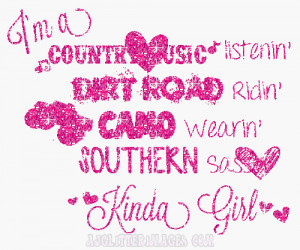 I'm a
COUNTRY MUSIC listenin'
DIRT ROAD Ridin'
CAMO Wearin'
SOUTHERN sass
Kinda Girl